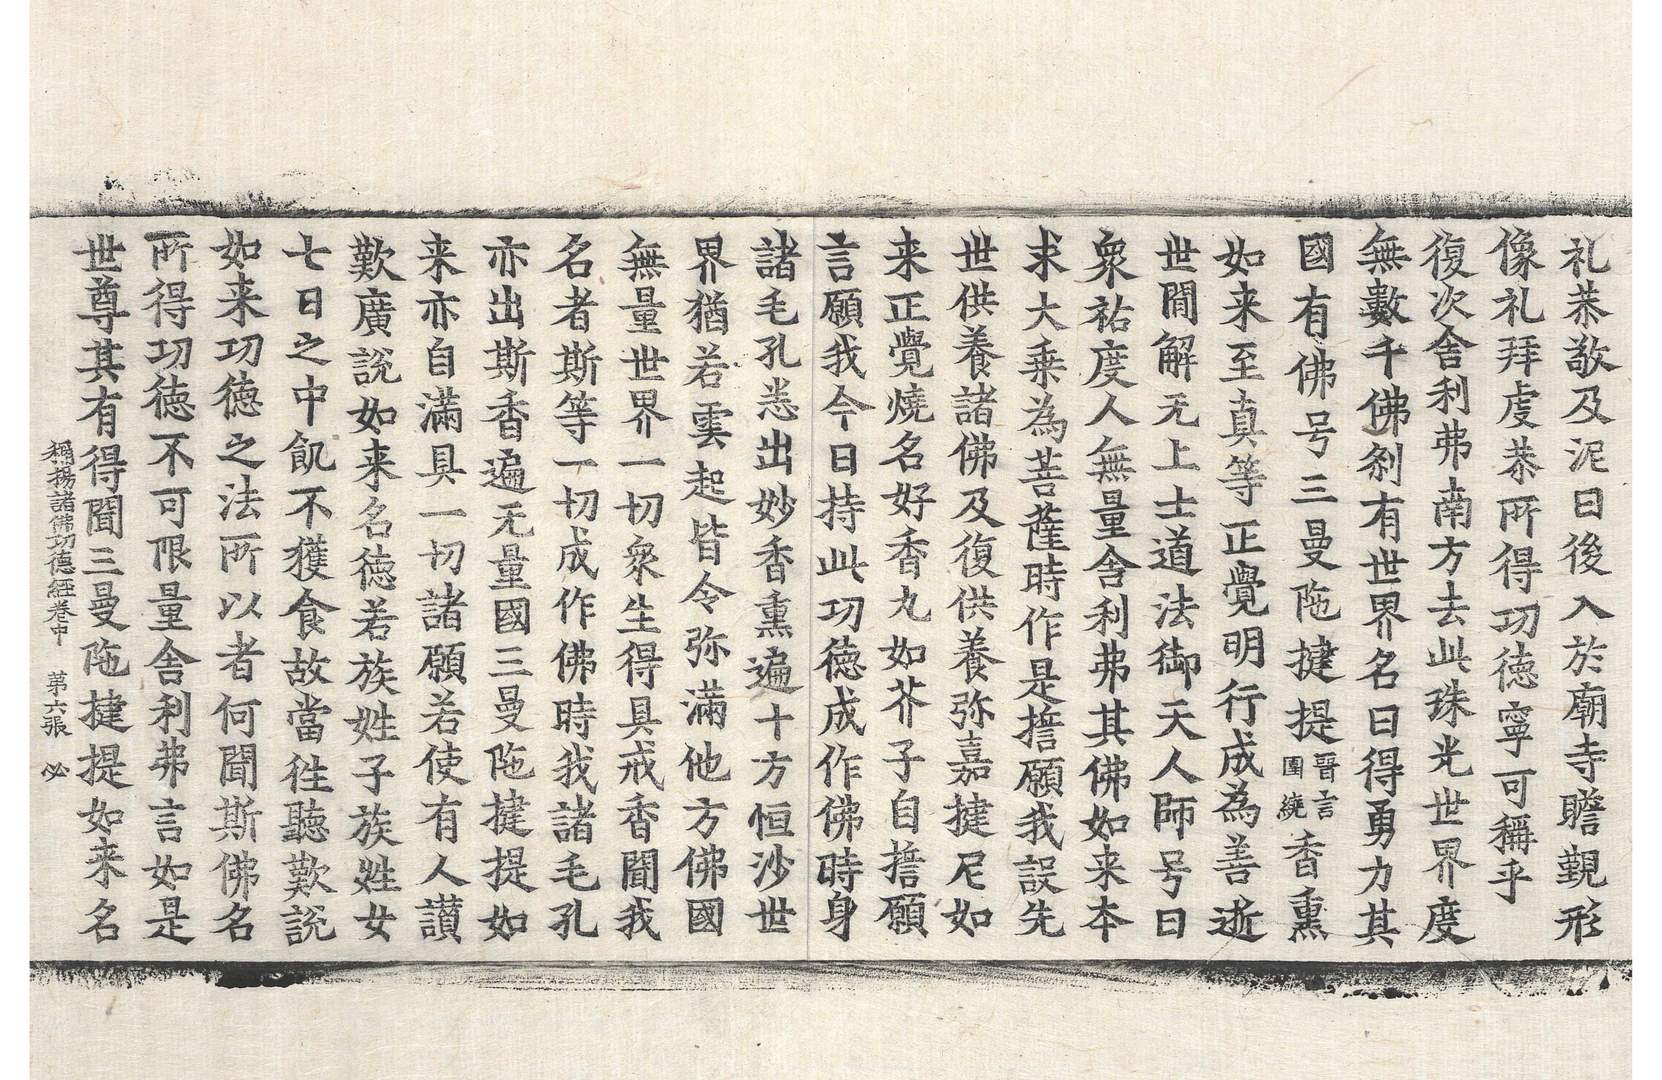 礼恭敬及泥曰後入於廟寺瞻覲形
像礼拜虔恭所得功德寧可稱乎
復次舍利弗南方去此珠光世界度
無數千佛剎有世界名曰得勇力其
國有佛号三曼陁揵提晉言圍繞香熏
如来至真等正覺明行成為善逝
世閒解无上士道法御天人師号曰
衆祐度人無量舍利弗其佛如来本
求大乗為菩薩時作是擔願我設先
世供養諸佛及復供養弥嘉揵尼如
来正覺燒名好香丸如芥子自擔願
言願我今日持此功德成作佛時身
諸毛孔悉出妙香熏遍十方恒沙世
界猶若雲起皆令弥滿他方佛國
無量世界一切衆生得具戒香聞我
名者斯等一切成作佛時我諸毛孔
亦出斯香遍无量國三曼陁揵提如
来亦自滿具一切諸願若使有人讃
歎廣說如来名德若族姓子族姓女
七日之中飢不獲食故當徃聽歎說
如来功德之法所以者何聞斯佛名
所得功德不可限量舍利弗言如是
世尊其有得聞三曼陁揵提如来名
稱揚諸佛功德經卷中 第六張 必